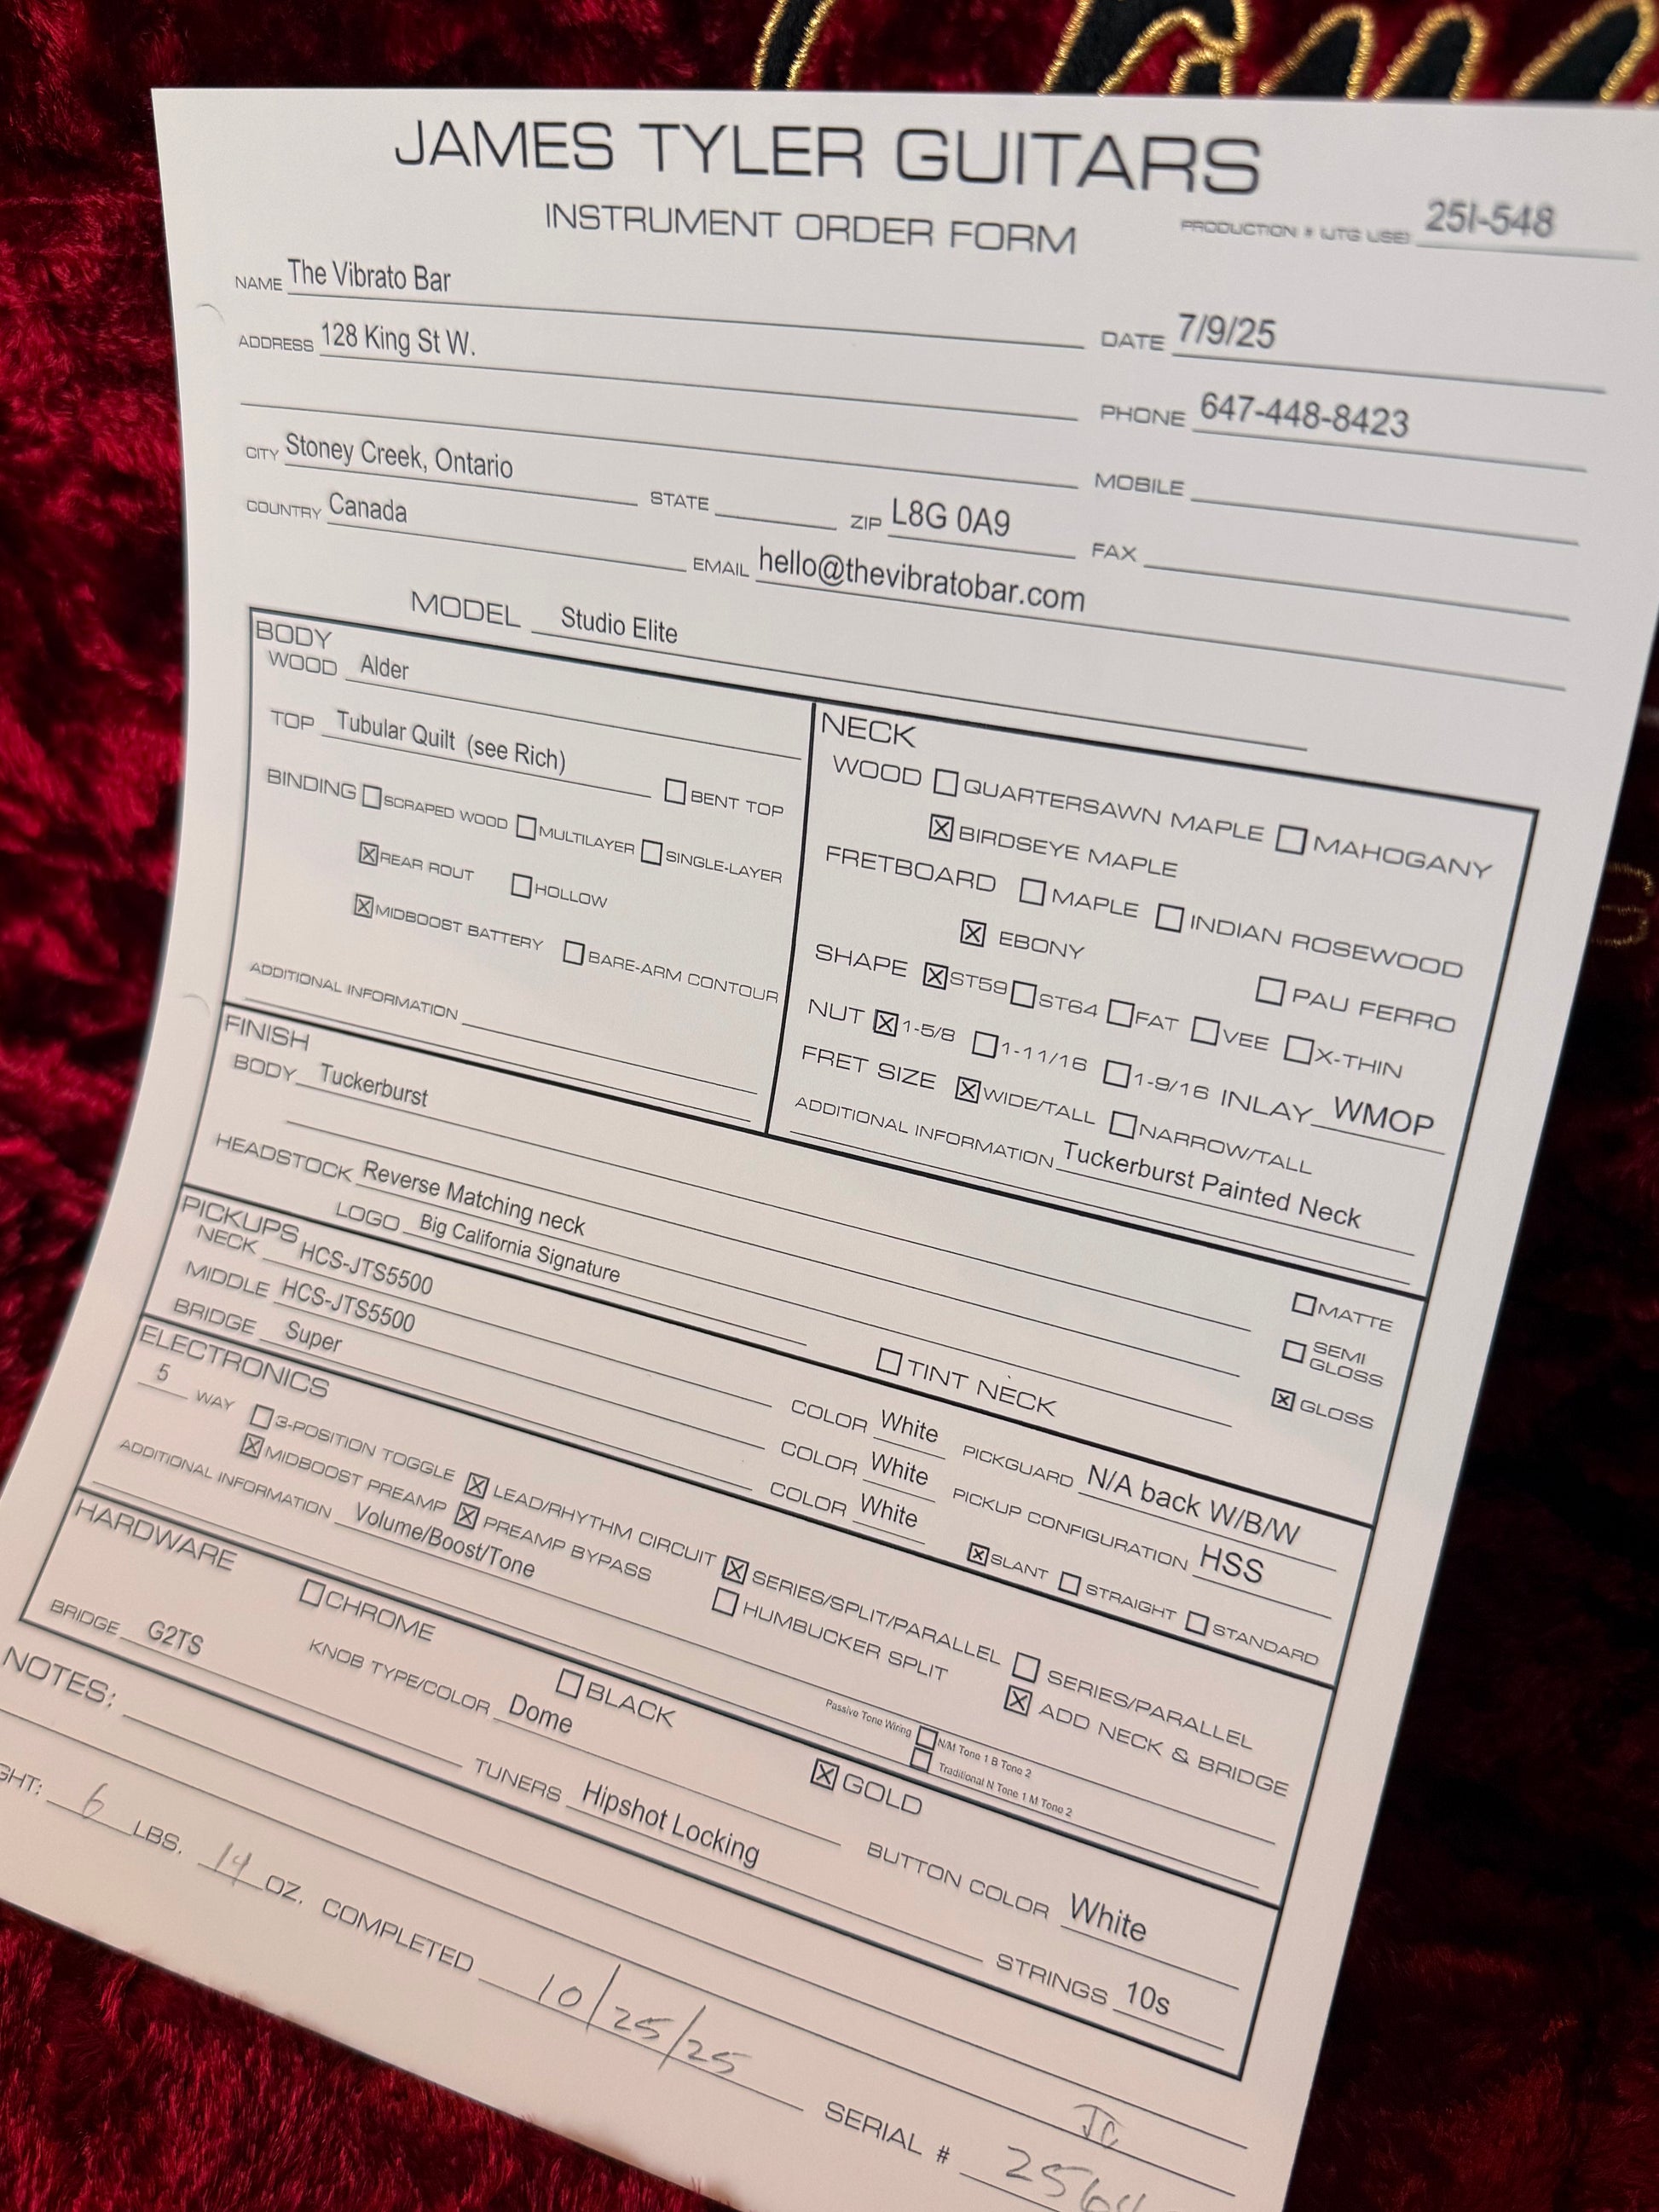 JAMES TYLER GUITARS
INSTRUMENT ORDER FORM
PRODUCTION # (JTG USE) 25I-548
NAME The Vibrato Bar
DATE 7/9/25
ADDRESS 128 King St W.
PHONE 647-448-8423
MOBILE
CITY Stoney Creek, Ontario STATE ZIP L8G 0A9
FAX
COUNTRY Canada EMAIL hello@thevibratobar.com
MODEL Studio Elite
BODY
WOOD Alder
TOP Tubular Quilt (see Rich) ☐ BENT TOP
BINDING ☐ SCRAPED WOOD ☐ MULTILAYER ☐ SINGLE-LAYER
☒ REAR ROUT ☐ HOLLOW
☒ MIDBOOST BATTERY ☐ BARE-ARM CONTOUR
ADDITIONAL INFORMATION
NECK
WOOD ☐ QUARTERSAWN MAPLE ☐ MAHOGANY
☒ BIRDSEYE MAPLE
FRETBOARD ☐ MAPLE ☐ INDIAN ROSEWOOD
☒ EBONY ☐ PAU FERRO
SHAPE ☒ ST59 ☐ ST64 ☐ FAT ☐ VEE ☐ X-THIN
NUT ☒ 1-5/8 ☐ 1-11/16 ☐ 1-9/16 INLAY WMOP
FRET SIZE ☒ WIDE/TALL ☐ NARROW/TALL
ADDITIONAL INFORMATION Tuckerburst Painted Neck
FINISH
BODY Tuckerburst
☐ MATTE
HEADSTOCK Reverse Matching neck
☐ SEMI GLOSS
LOGO Big California Signature ☐ TINT NECK ☒ GLOSS
PICKUPS
NECK HCS-JTS5500 COLOR White PICKGUARD N/A back W/B/W
MIDDLE HCS-JTS5500 COLOR White PICKUP CONFIGURATION HSS
BRIDGE Super COLOR White ☒ SLANT ☐ STRAIGHT ☐ STANDARD
ELECTRONICS
5 WAY ☐ 3-POSITION TOGGLE ☒ LEAD/RHYTHM CIRCUIT ☒ SERIES/SPLIT/PARALLEL ☐ SERIES/PARALLEL
☒ MIDBOOST PREAMP ☒ PREAMP BYPASS ☐ HUMBUCKER SPLIT ☒ ADD NECK & BRIDGE
ADDITIONAL INFORMATION Volume/Boost/Tone
Passive Tone Wiring ☐ N/M Tone 1 B Tone 2
☐ Traditional N Tone 1 M Tone 2
HARDWARE ☐ CHROME ☐ BLACK ☒ GOLD
KNOB TYPE/COLOR Dome BUTTON COLOR White
BRIDGE G2TS TUNERS Hipshot Locking STRINGS 10s
NOTES:
JC
6 LBS. 14 OZ. COMPLETED 10/25/25 SERIAL #